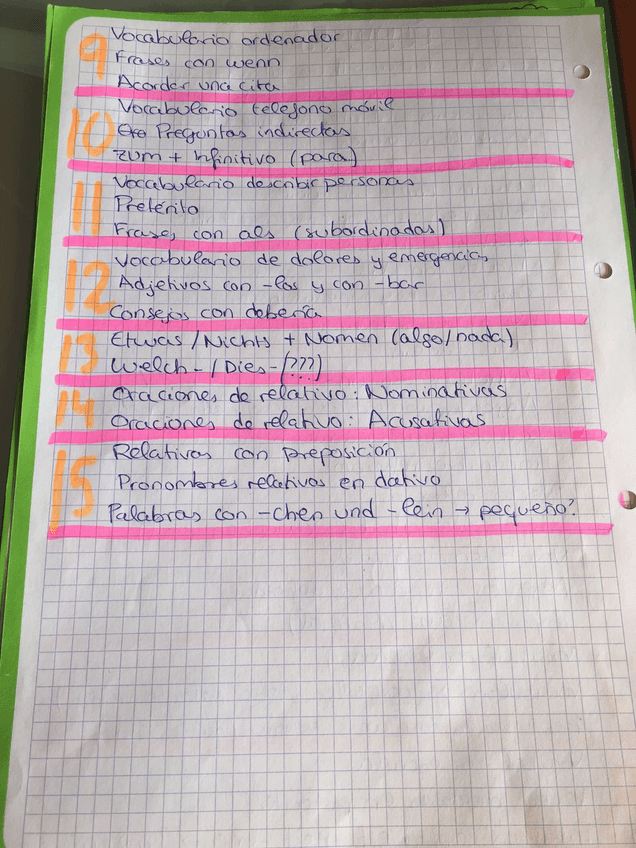 9
Vocabulario ordenador
Frases con wenn
Acordar una cita
10
Vocabulario telefono móvil
Preguntas indirectas
zum + Infinitivo (para)
11
Vocabulario describir personas
Pretérito
Frases con als (subordinadas)
12
Vocabulario de dolores y emergencias
Adjetivos con -los y con -bar
Consejos con debería
13
Etwas/Nichts + Nomen (algo/nada)
Welch-/Dies-(???)
14
Oraciones de relativo: Nominativas
Oraciones de relativo: Acusativas
15
Relativos con preposición
Pronombres relativos en dativo
Palabras con -chen und -lein → pequeño?